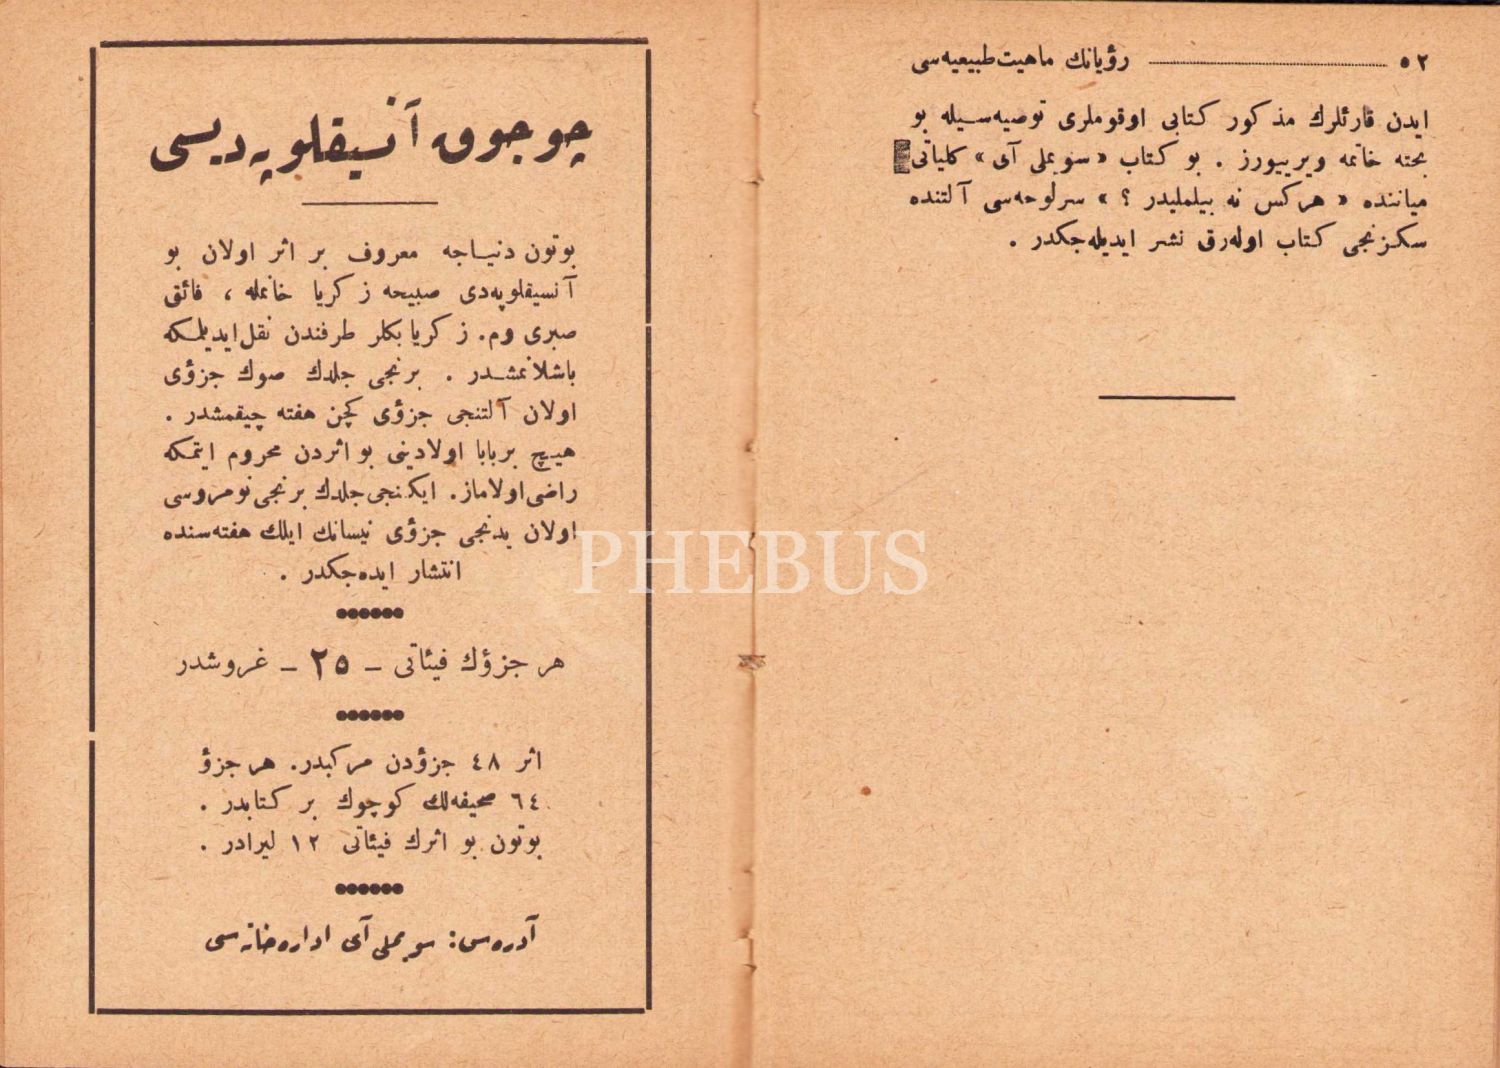 ٥٢ رؤيانك ماهيت طبيعيه‌سى
ايدن قارئلرك مذكور كتابى اوقوملرى توصيه‌سيله بو
بحثه خاتمه ويرييورز . بو كتاب « سويملى آى » كلياتى
مياننده « هركس نه بيلمليدر ؟ » سرلوحه‌سى آلتنده
سكزنجى كتاب اوله‌رق نشر ايديله‌جكدر .
چوجوق آنسيقلوپه‌ديسى
بوتون دنياجه معروف بر اثر اولان بو
آنسيقلوپه‌دى صبيحه زكريا خانمله ، فائق
صبرى و م. زكريا بكلر طرفندن نقل ايديلمكه
باشلانمشدر . برنجى جلدك صوك جزؤى
اولان آلتنجى جزؤى كچن هفته چيقمشدر .
هيچ بر بابا اولادينى بو اثردن محروم ايتمكه
راضى اولاماز. ايكنجى جلدك برنجى نومروسى
اولان يدنجى جزؤى نيسانك ايلك هفته‌سنده
انتشار ايده‌جكدر .
هر جزؤك فيئاتى ـ ٢٥ ـ غروشدر
اثر ٤٨ جزؤدن مركبدر. هر جزؤ
٦٤ صحيفه‌لك كوچوك بر كتابدر .
بوتون بو اثرك فيئاتى ١٢ ليرادر .
آدره‌س: سويملى آى اداره‌خانه‌سى
PHEBUS